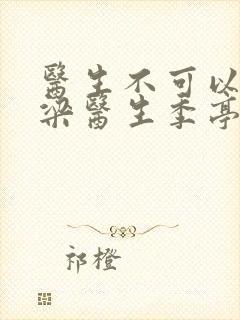 醫生不可以
梁醫生季亭
祁橙